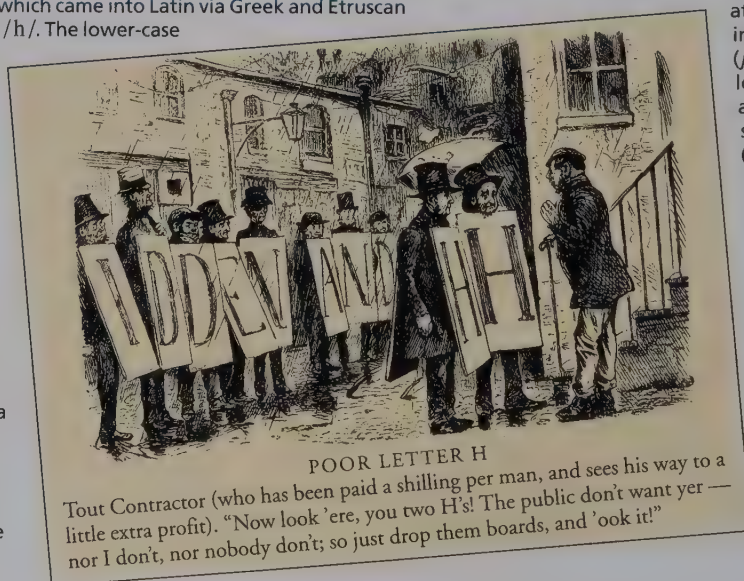 which came into Latin via Greek and Etruscan
/h/. The lower-case
I D D E N A N D H H
POOR LETTER H
Tout Contractor (who has been paid a shilling per man, and sees his way to a
little extra profit). “Now look 'ere, you two H's! The public don't want yer —
nor I don't, nor nobody don't; so just drop them boards, and 'ook it!”
a